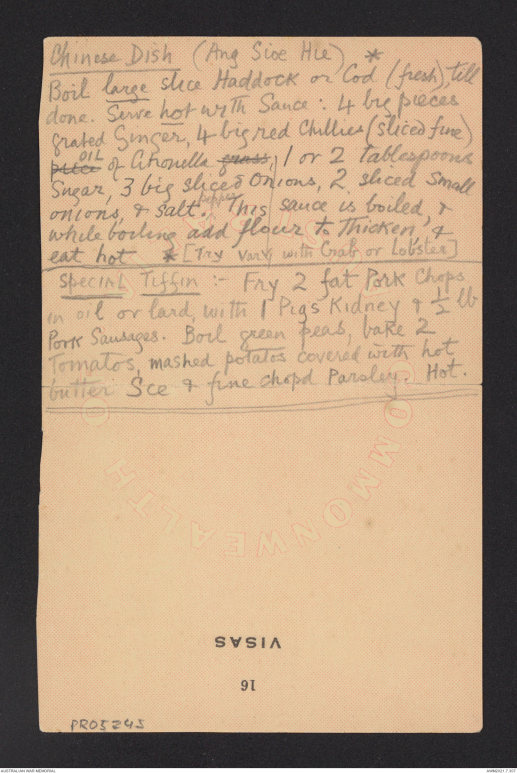 Chinese Dish (Ang Sioe Hie) *
Boil large slice Haddock or Cod (fresh), till
done. Serve hot with Sauce: 4 big pieces
grated Ginger, 4 big red Chillies (sliced fine)
OIL
of Citronella grass, 1 or 2 Tablespoons
Sugar, 3 big sliced Onions, 2 sliced Small
pepper
onions, & salt. This sauce is boiled, &
while boiling add flour to Thicken, &
eat hot * [Try vary with Crab or Lobster]
Special Tiffin :- Fry 2 fat Pork Chops
in oil or lard, with 1 Pigs Kidney & ½ lb
Pork Sausages. Boil green peas, bake 2
Tomatos, mashed potatos covered with hot
butter Sce & fine chopd Parsley. Hot.
COMMONWEALTH
VISAS
16
PR05245
AUSTRALIAN WAR MEMORIAL
AWM2021.7.107